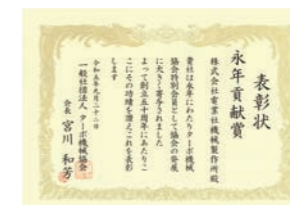 表彰状
永年貢献賞
株式会社電業社機械製作所殿
貴社は永年にわたりターボ機械
協会特別会員として協会の発展
に大きく寄与されました
よって創立五十周年にあたりこ
こにその功績を讃えこれを表彰
します
令和五年九月二十二日
一般社団法人 ターボ機械協会
会長 宮川 和芳